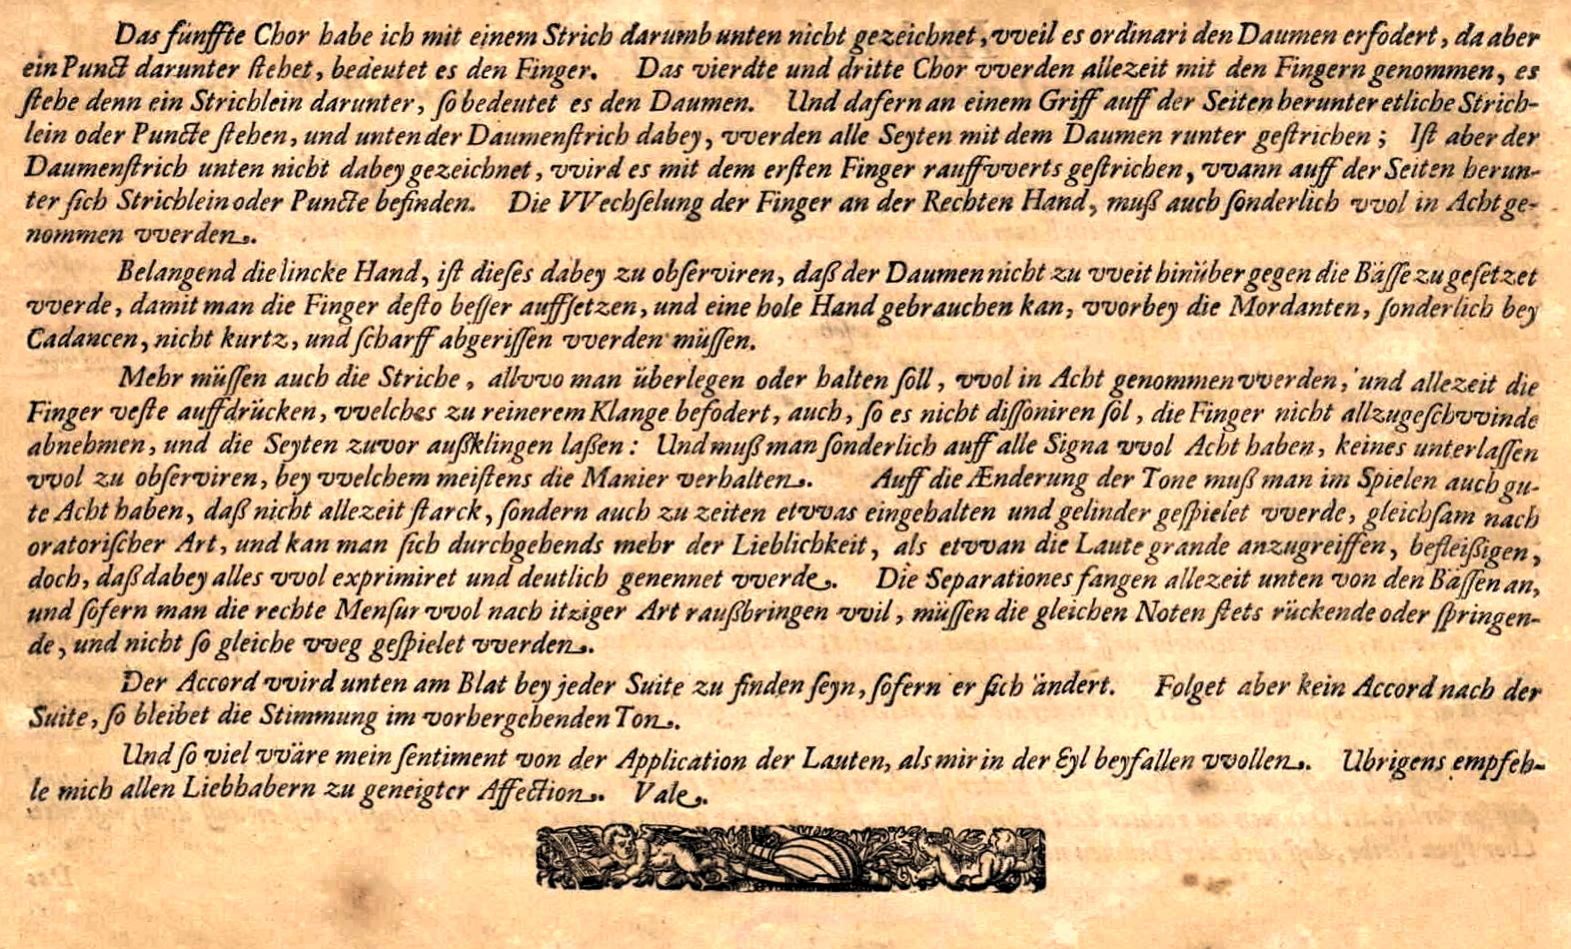 Das fünffte Chor habe ich mit einem Strich darumb unten nicht gezeichnet, vveil es ordinari den Daumen erfodert, da aber
ein Punct darunter ſtehet, bedeutet es den Finger. Das vierdte und dritte Chor vverden allezeit mit den Fingern genommen, es
ſtehe denn ein Strichlein darunter, ſo bedeutet es den Daumen. Und dafern an einem Griff auff der Seiten herunter etliche Strich-
lein oder Puncte ſtehen, und unten der Daumenſtrich dabey, vverden alle Seyten mit dem Daumen runter geſtrichen; Iſt aber der
Daumenſtrich unten nicht dabey gezeichnet, vvird es mit dem erſten Finger rauffvverts geſtrichen, vvann auff der Seiten herun-
ter ſich Strichlein oder Puncte befinden. Die VVechſelung der Finger an der Rechten Hand, muß auch ſonderlich vvol in Acht ge-
nommen vverden.
Belangend die lincke Hand, iſt dieſes dabey zu obſerviren, daß der Daumen nicht zu vveit hinüber gegen die Bäſſe zu geſetzet
vverde, damit man die Finger deſto beſſer auffſetzen, und eine hole Hand gebrauchen kan, vvorbey die Mordanten, ſonderlich bey
Cadancen, nicht kurtz, und ſcharff abgeriſſen vverden müſſen.
Mehr müſſen auch die Striche, allvvo man überlegen oder halten ſoll, vvol in Acht genommen vverden, und allezeit die
Finger veſte auffdrücken, vvelches zu reinerem Klange befodert, auch, ſo es nicht diſſoniren ſol, die Finger nicht allzugeſchvvinde
abnehmen, und die Seyten zuvor außklingen laßen: Und muß man ſonderlich auff alle Signa vvol Acht haben, keines unterlaſſen
vvol zu obſerviren, bey vvelchem meiſtens die Manier verhalten. Auff die Ænderung der Tone muß man im Spielen auch gu-
te Acht haben, daß nicht allezeit ſtarck, ſondern auch zu zeiten etvvas eingehalten und gelinder geſpielet vverde, gleichſam nach
oratoriſcher Art, und kan man ſich durchgehends mehr der Lieblichkeit, als etvvan die Laute grande anzugreiffen, befleißigen,
doch, daß dabey alles vvol exprimiret und deutlich genennet vverde. Die Separationes fangen allezeit unten von den Bäſſen an,
und ſofern man die rechte Menſur vvol nach itziger Art raußbringen vvil, müſſen die gleichen Noten ſtets rückende oder ſpringen-
de, und nicht ſo gleiche vveg geſpielet vverden.
Der Accord vvird unten am Blat bey jeder Suite zu finden ſeyn, ſofern er ſich ändert. Folget aber kein Accord nach der
Suite, ſo bleibet die Stimmung im vorhergehenden Ton.
Und ſo viel vväre mein ſentiment von der Application der Lauten, als mir in der Eyl beyfallen vvollen. Ubrigens empfeh-
le mich allen Liebhabern zu geneigter Affection. Vale.